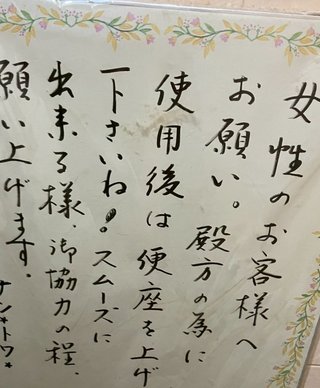 女性のお客様へ
お願い。殿方の為に
使用後は便座を上げ
下さいね!スムーズに
出来る様、御協力の程、
願い上げます。
ナン*トワ*